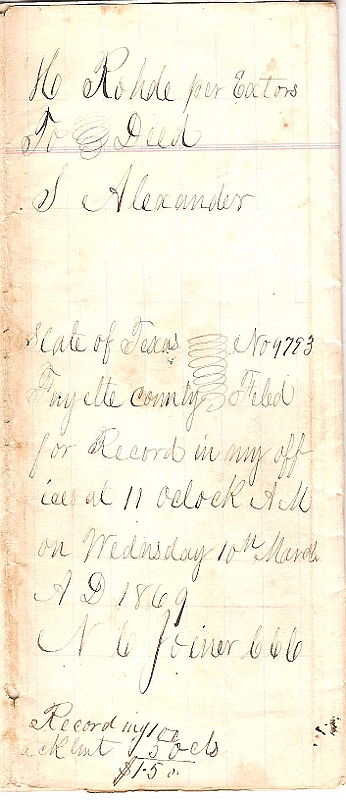 H Rohde per Extors
To Deed
S Alexander
State of Texas No 9793
Fayette county Filed
for Record in my off
ice at 11 oclock A M
on Wednsday 10th March
A D 1869
N C Joiner CCC
Recording 1 00
ack ment 50 cts
$1.50